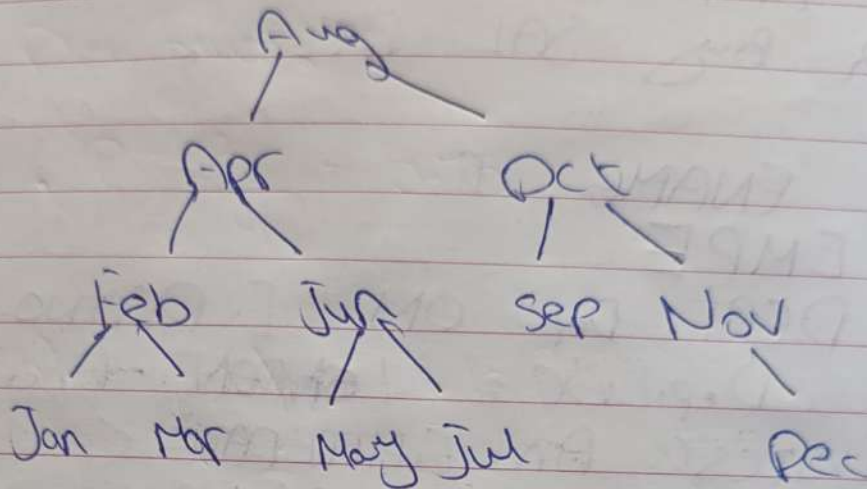 Aug
Apr Oct
Feb Jun Sep Nov
Jan Mar May Jul Dec